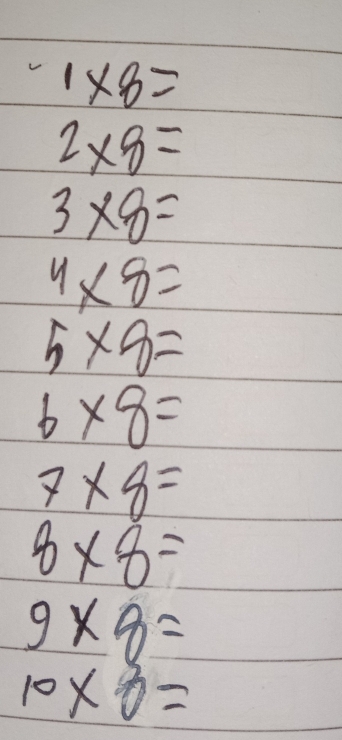 1×8=
2×8=
3×8=
4×8=
5×8=
6×8=
7×8=
8×8=
9×8=
10×8=